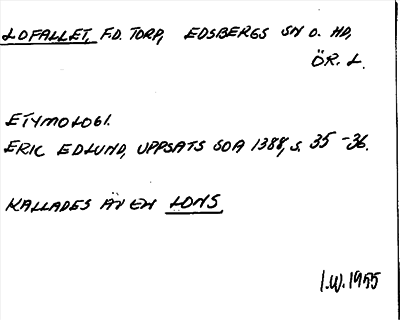 LOFALLET, F.D. TORP, EDSBERGS SN O. HD,
ÖR. L.
ETYMOLOGI.
ERIC EDLUND, UPPSATS SOA 1388, S. 35-36.
KALLADES ÄVEN LONS
I.W. 1955